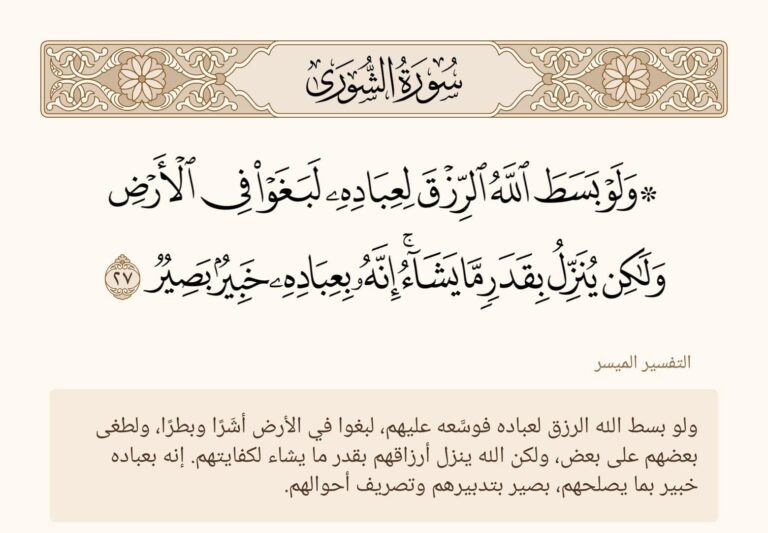 سُورَةُ الشُّورَىٰ
۞ وَلَوْ بَسَطَ ٱللَّهُ ٱلرِّزْقَ لِعِبَادِهِۦ لَبَغَوْا۟ فِى ٱلْأَرْضِ
وَلَـٰكِن يُنَزِّلُ بِقَدَرٍ مَّا يَشَآءُ ۚ إِنَّهُۥ بِعِبَادِهِۦ خَبِيرٌۢ بَصِيرٌ ٢٧
التفسير الميسر
ولو بسط الله الرزق لعباده فوسَّعه عليهم، لبغوا في الأرض أشَرًا وبطرًا، ولطغى
بعضهم على بعض، ولكن الله ينزل أرزاقهم بقدر ما يشاء لكفايتهم. إنه بعباده
خبير بما يصلحهم، بصير بتدبيرهم وتصريف أحوالهم.